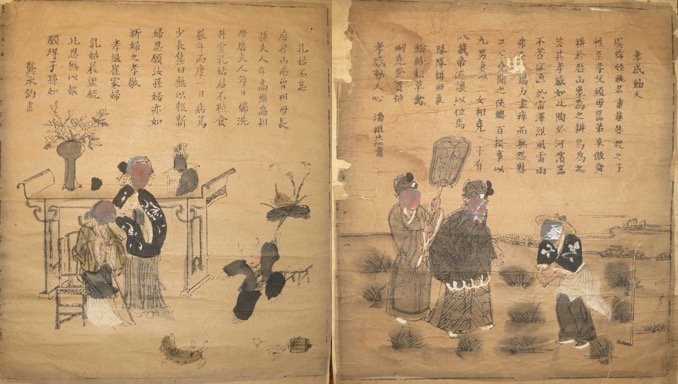 孝感動天
虞舜姓姚名重華瞽瞍之子
性至孝父頑母嚚弟象傲舜
耕於歷山象為之耕鳥為之
耘其孝感如此陶於河濱器
不苦窳漁於雷澤烈風雷雨
弗迷雖竭力盡瘁而無怨懟
之心堯聞之使總百揆事以
九男妻以二女相堯二十有
八載帝遂讓以位焉
隊隊耕田象
紛紛耘草禽
嗣堯登寶位
孝感動天心 潘祖蔭書
乳姑不怠
唐崔山南曾祖母長
孫夫人年高無齒祖
母唐夫人每日櫛洗
升堂乳姑姑不粒食
數年而康一日病篤
少長集曰無以報新
婦恩願汝孫婦亦如
新婦之孝敬
孝敬崔家婦
乳姑晨盥梳
此恩無以報
願得子孫如
龔承鈞書